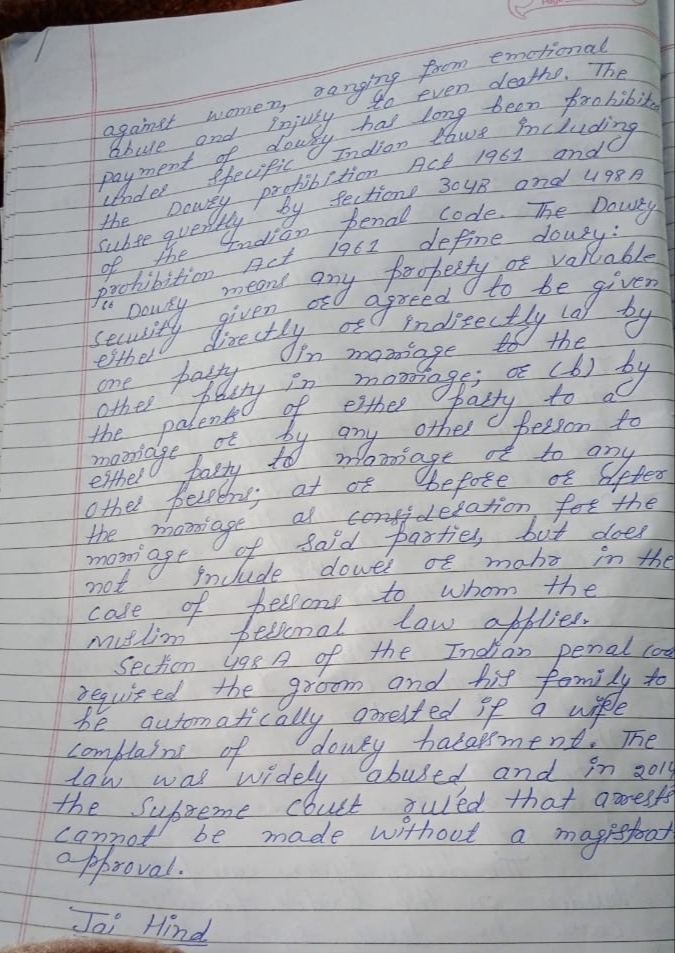 against women, ranging from emotional
abuse and injury to even deaths. The
payment of dowry has long been prohibite
under specific Indian laws including
the Dowry prohibition Act 1961 and
subsequently by sections 304B and 498A
of the Indian penal code. The Dowry
prohibition Act 1961 define dowry:
"Dowry means any property or valuable
security given or agreed to be given
either directly or indirectly (a) by
one party in marriage to the
other party in marriage; or (b) by
the parents of either party to a
marriage or by any other person to
either party to marriage or to any
other persons; at or before or after
the marriage as consideration for the
marriage of said parties, but does
not include dower or mahr in the
case of persons to whom the
Muslim personal law applies.
Section 498A of the Indian penal cod
required the groom and his family to
be automatically arrested if a wife
complains of dowry harassment. The
law was widely abused and in 2014
the Supreme court ruled that arrests
cannot be made without a magistrat
approval.
Jai Hind